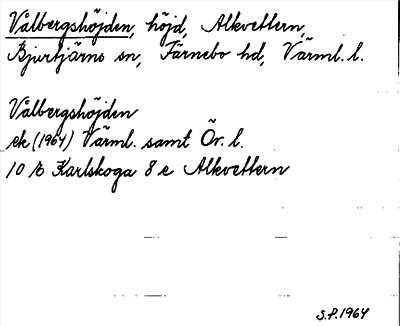 Valbergshöjden, höjd, Alkvettern,
Bjurtjärns sn, Färnebo hd, Värml. l.
Valbergshöjden
ek (1964) Värml. samt Ör. l.
10 E Karlskoga 8 e Alkvettern
S.P. 1964